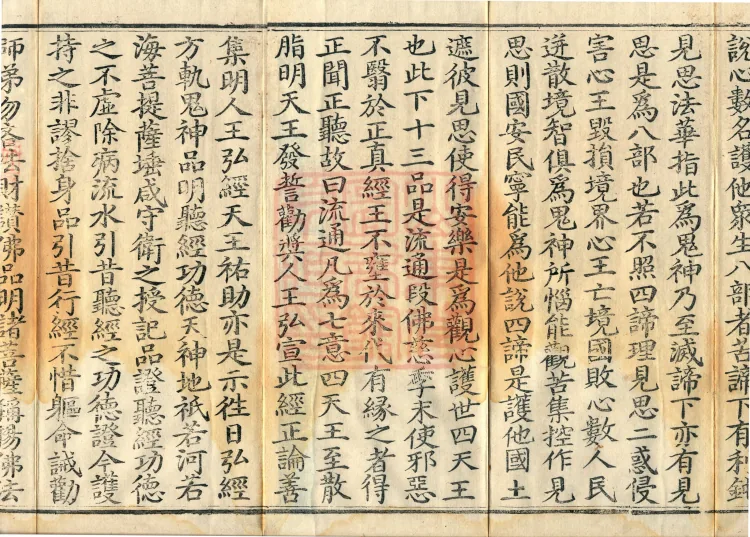 說心數名護他衆生八部者苦諦下有利鈍
見思法華指此為鬼神乃至滅諦下亦有見
思是為八部也若不照四諦理見思二惑侵
害心王毀損境界心王亡境國敗心數人民
迸散境智俱為鬼神所惱能觀苦集控作見
思則國安民寧能為他說四諦是護他國土
遮彼見思使得安樂是為觀心護世四天王
也此下十三品是流通段佛慈季末使邪惡
不翳於正真經王不壅於來代有緣之者得
正聞正聽故曰流通凡為七意四天王至散
脂明天王發誓勸奬人王弘宣此經正論善
集明人王弘經天王祐助亦是示徃日弘經
方軌鬼神品明聽經功德天神地祇若河若
海菩提薩埵咸守衛之授記品證聽經功德
之不虛除病流水引昔聽經之功德證今護
持之非謬捨身品引昔行經不惜軀命誡勸
師弟勿吝法財讃佛品明諸菩薩稱揚佛法